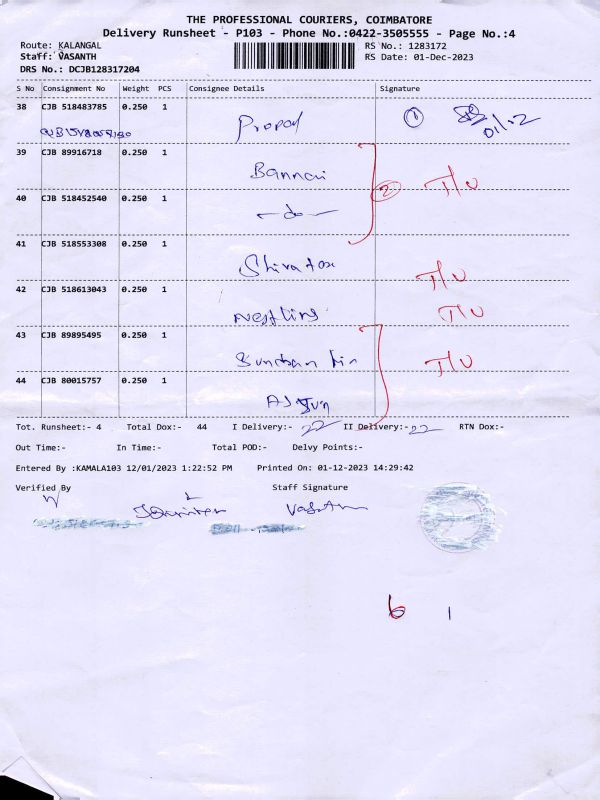 THE PROFESSIONAL COURIERS, COIMBATORE
Delivery Runsheet - P103 - Phone No.:0422-3505555 - Page No.:4
Route: KALANGAL RS No.: 1283172
Staff: VASANTH RS Date: 01-Dec-2023
DRS No.: DCJB128317204
S No Consignment No Weight PCS Consignee Details Signature
38 CJB 518483785 0.250 1 ① 01/12
39 CJB 89916718 0.250 1 Bannari
40 CJB 518452540 0.250 1 -do- 2 T/U
41 CJB 518553308 0.250 1 T/U
42 CJB 518613043 0.250 1 Nestling T/U
43 CJB 89895495 0.250 1 T/U
44 CJB 80015757 0.250 1 Arjun
Tot. Runsheet:- 4 Total Dox:- 44 I Delivery:- 22 II Delivery:- 22 RTN Dox:-
Out Time:- In Time:- Total POD:- Delvy Points:-
Entered By :KAMALA103 12/01/2023 1:22:52 PM Printed On: 01-12-2023 14:29:42
Verified By Staff Signature
Vasanth
6 1